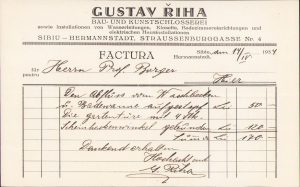 GUSTAV ŘIHA
BAU- UND KUNSTSCHLOSSEREI
sowie Installationen von Wasserleitungen, Klosetts, Badezimmereinrichtungen und
elektrischen Hausinstallationen
SIBIU - HERMANNSTADT, STRAUSSENBURGGASSE Nr. 4
FACTURA
Sibiu, den 14/IV 1934
Hermannstadt,
für
pentru
Herrn Prof. Burger
Hier
Den Abfluss vom Waschbecken
u. Badewanne aufgestopft Lei 50 —
Die mit 4 Stk.
Lei 120 —
Summe Lei 170 —
Dankend erhalten
Hochachtend
G. Riha